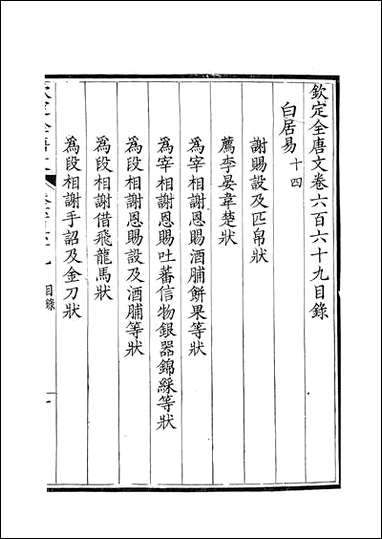 欽定全唐文卷六百六十九目錄
白居易十四
謝賜設及匹帛狀
薦李晏韋楚狀
爲宰相謝恩賜酒脯餅果等狀
爲宰相謝恩賜吐蕃信物銀器錦綵等狀
爲段相謝恩賜設及酒脯等狀
爲段相謝借飛龍馬狀
爲段相謝手詔及金刀狀
目錄
一